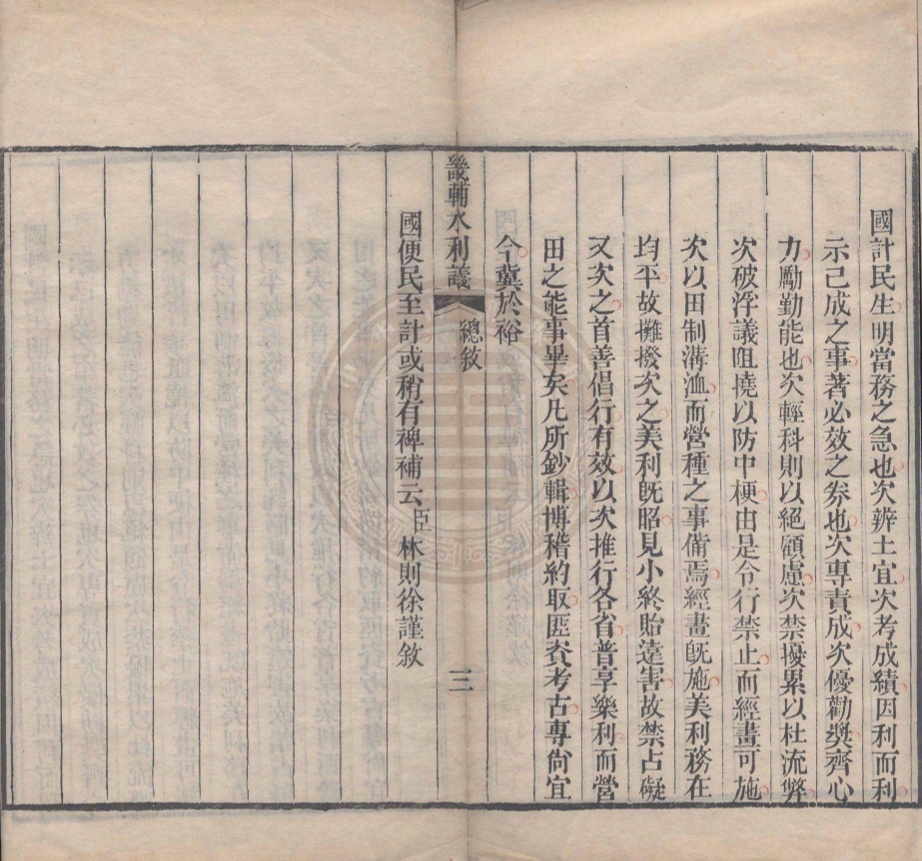 國計民生明當務之急也次辨土宜次考成績因利而利
示已成之事著必效之券也次專責成次優勸奬齊心
力勵勤能也次輕科則以絕顧慮次禁擾累以杜流弊
次破浮議阻撓以防中梗由是令行禁止而經畫可施
次以田制溝洫而營種之事備焉經畫旣施美利務在
均平故攤撥次之美利旣昭見小終貽遠害故禁占礙
又次之首善倡行有效以次推行各省普享樂利而營
田之能事畢矣凡所鈔輯博稽約取匪資考古專尙宜
今冀於裕
畿輔水利議
總敘
三
國便民至計或稍有裨補云臣林則徐謹敘